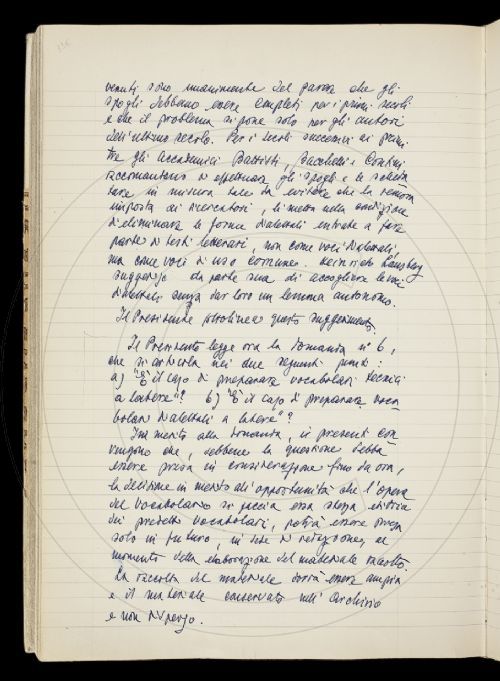 venuti sono unanimente del parere che gli
spogli debbono essere completi per i primi secoli
e che il problema si pone solo per gli autori
dell'ultimo secolo. Per i secoli successivi ai primi
tre gli Accademici Battisti, Bacchelli e Contini
raccomandano di effettuare gli spogli e le schede
ture in misura tale da evitare che la remora
imposta ai ricercatori, li metta nella condizione
di eliminare le forme dialettali entrate a fare
parte di testi letterari, non come voci dialettali,
ma come voci di uso comune.
suggerisce da parte sua di accogliere le voci
dialettali senza dar loro un lemma autonomo.
Il Presidente sottolinea questo suggerimento.
Il Presidente legge ora la domanda n° 6,
che si articola nei due seguenti punti:
a) "È il caso di preparare vocabolari tecnici
a latere"? b) "È il caso di preparare voca
bolari dialettali a latere"?
In merito alla domanda, i presenti con
vengono che, sebbene la questione debba
essere presa in considerazione fino da ora,
la decisione in merito all'opportunità che l'opera
del vocabolario si faccia essa stessa editrice
dei predetti vocabolari, potrà essere presa
solo in futuro, in sede di redazione, al
momento della elaborazione del materiale raccolto.
La raccolta del materiale dovrà essere ampia
e il materiale conservato nell'Archivio
e non disperso.